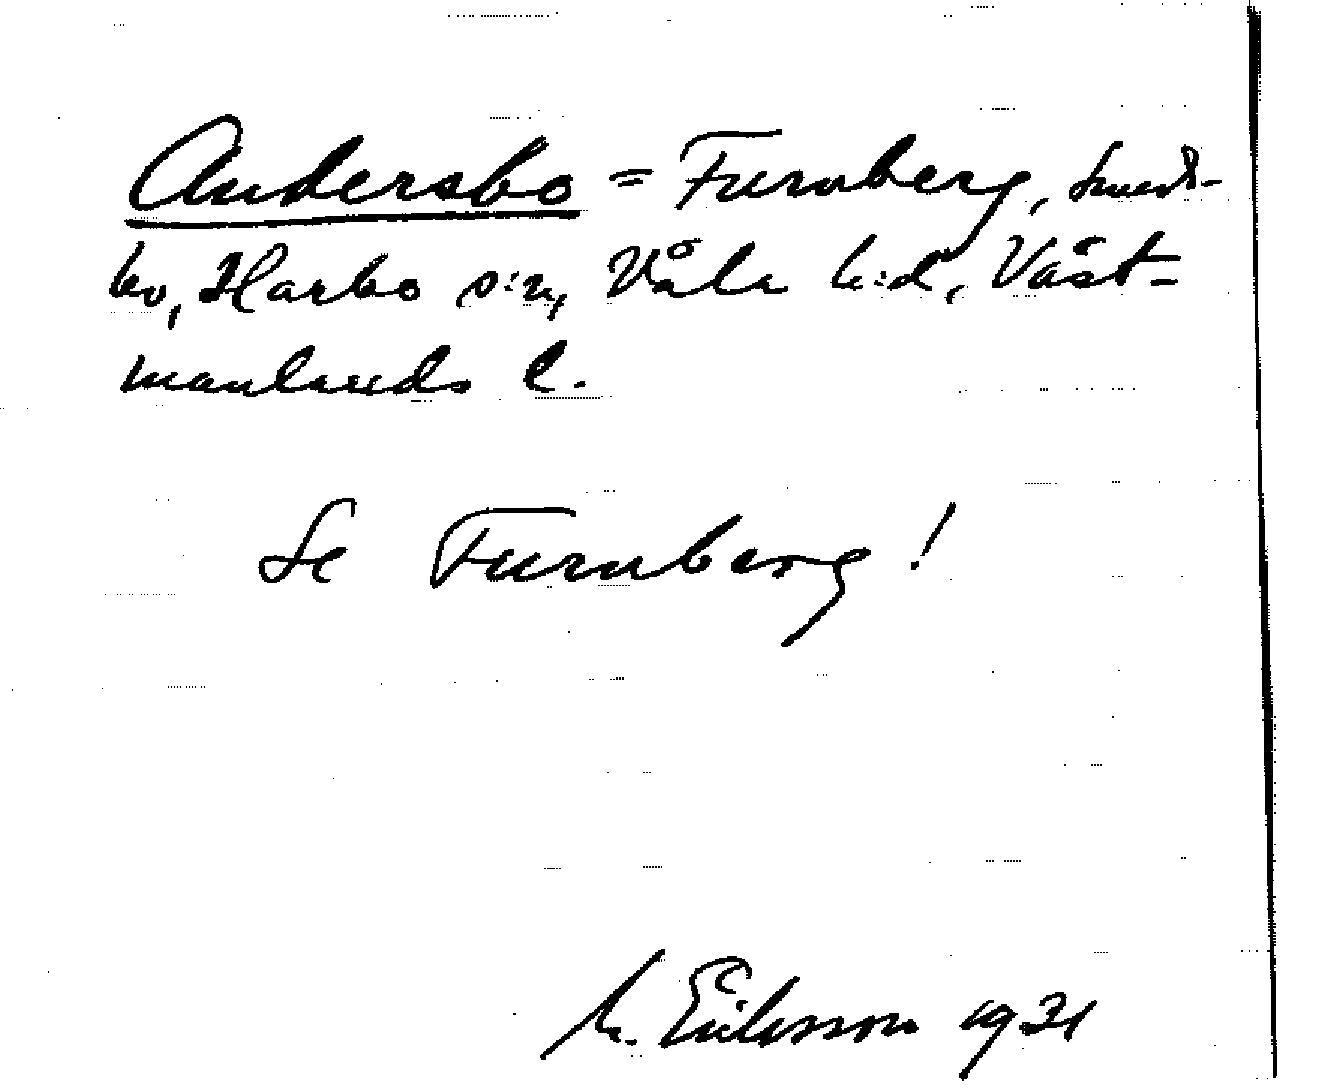 Andersbo = Furuberg, Smeds-
bo, Harbo s:n, Våla h:d, Väst-
manlands l.
Se Furuberg!
M. Eriksson 1931